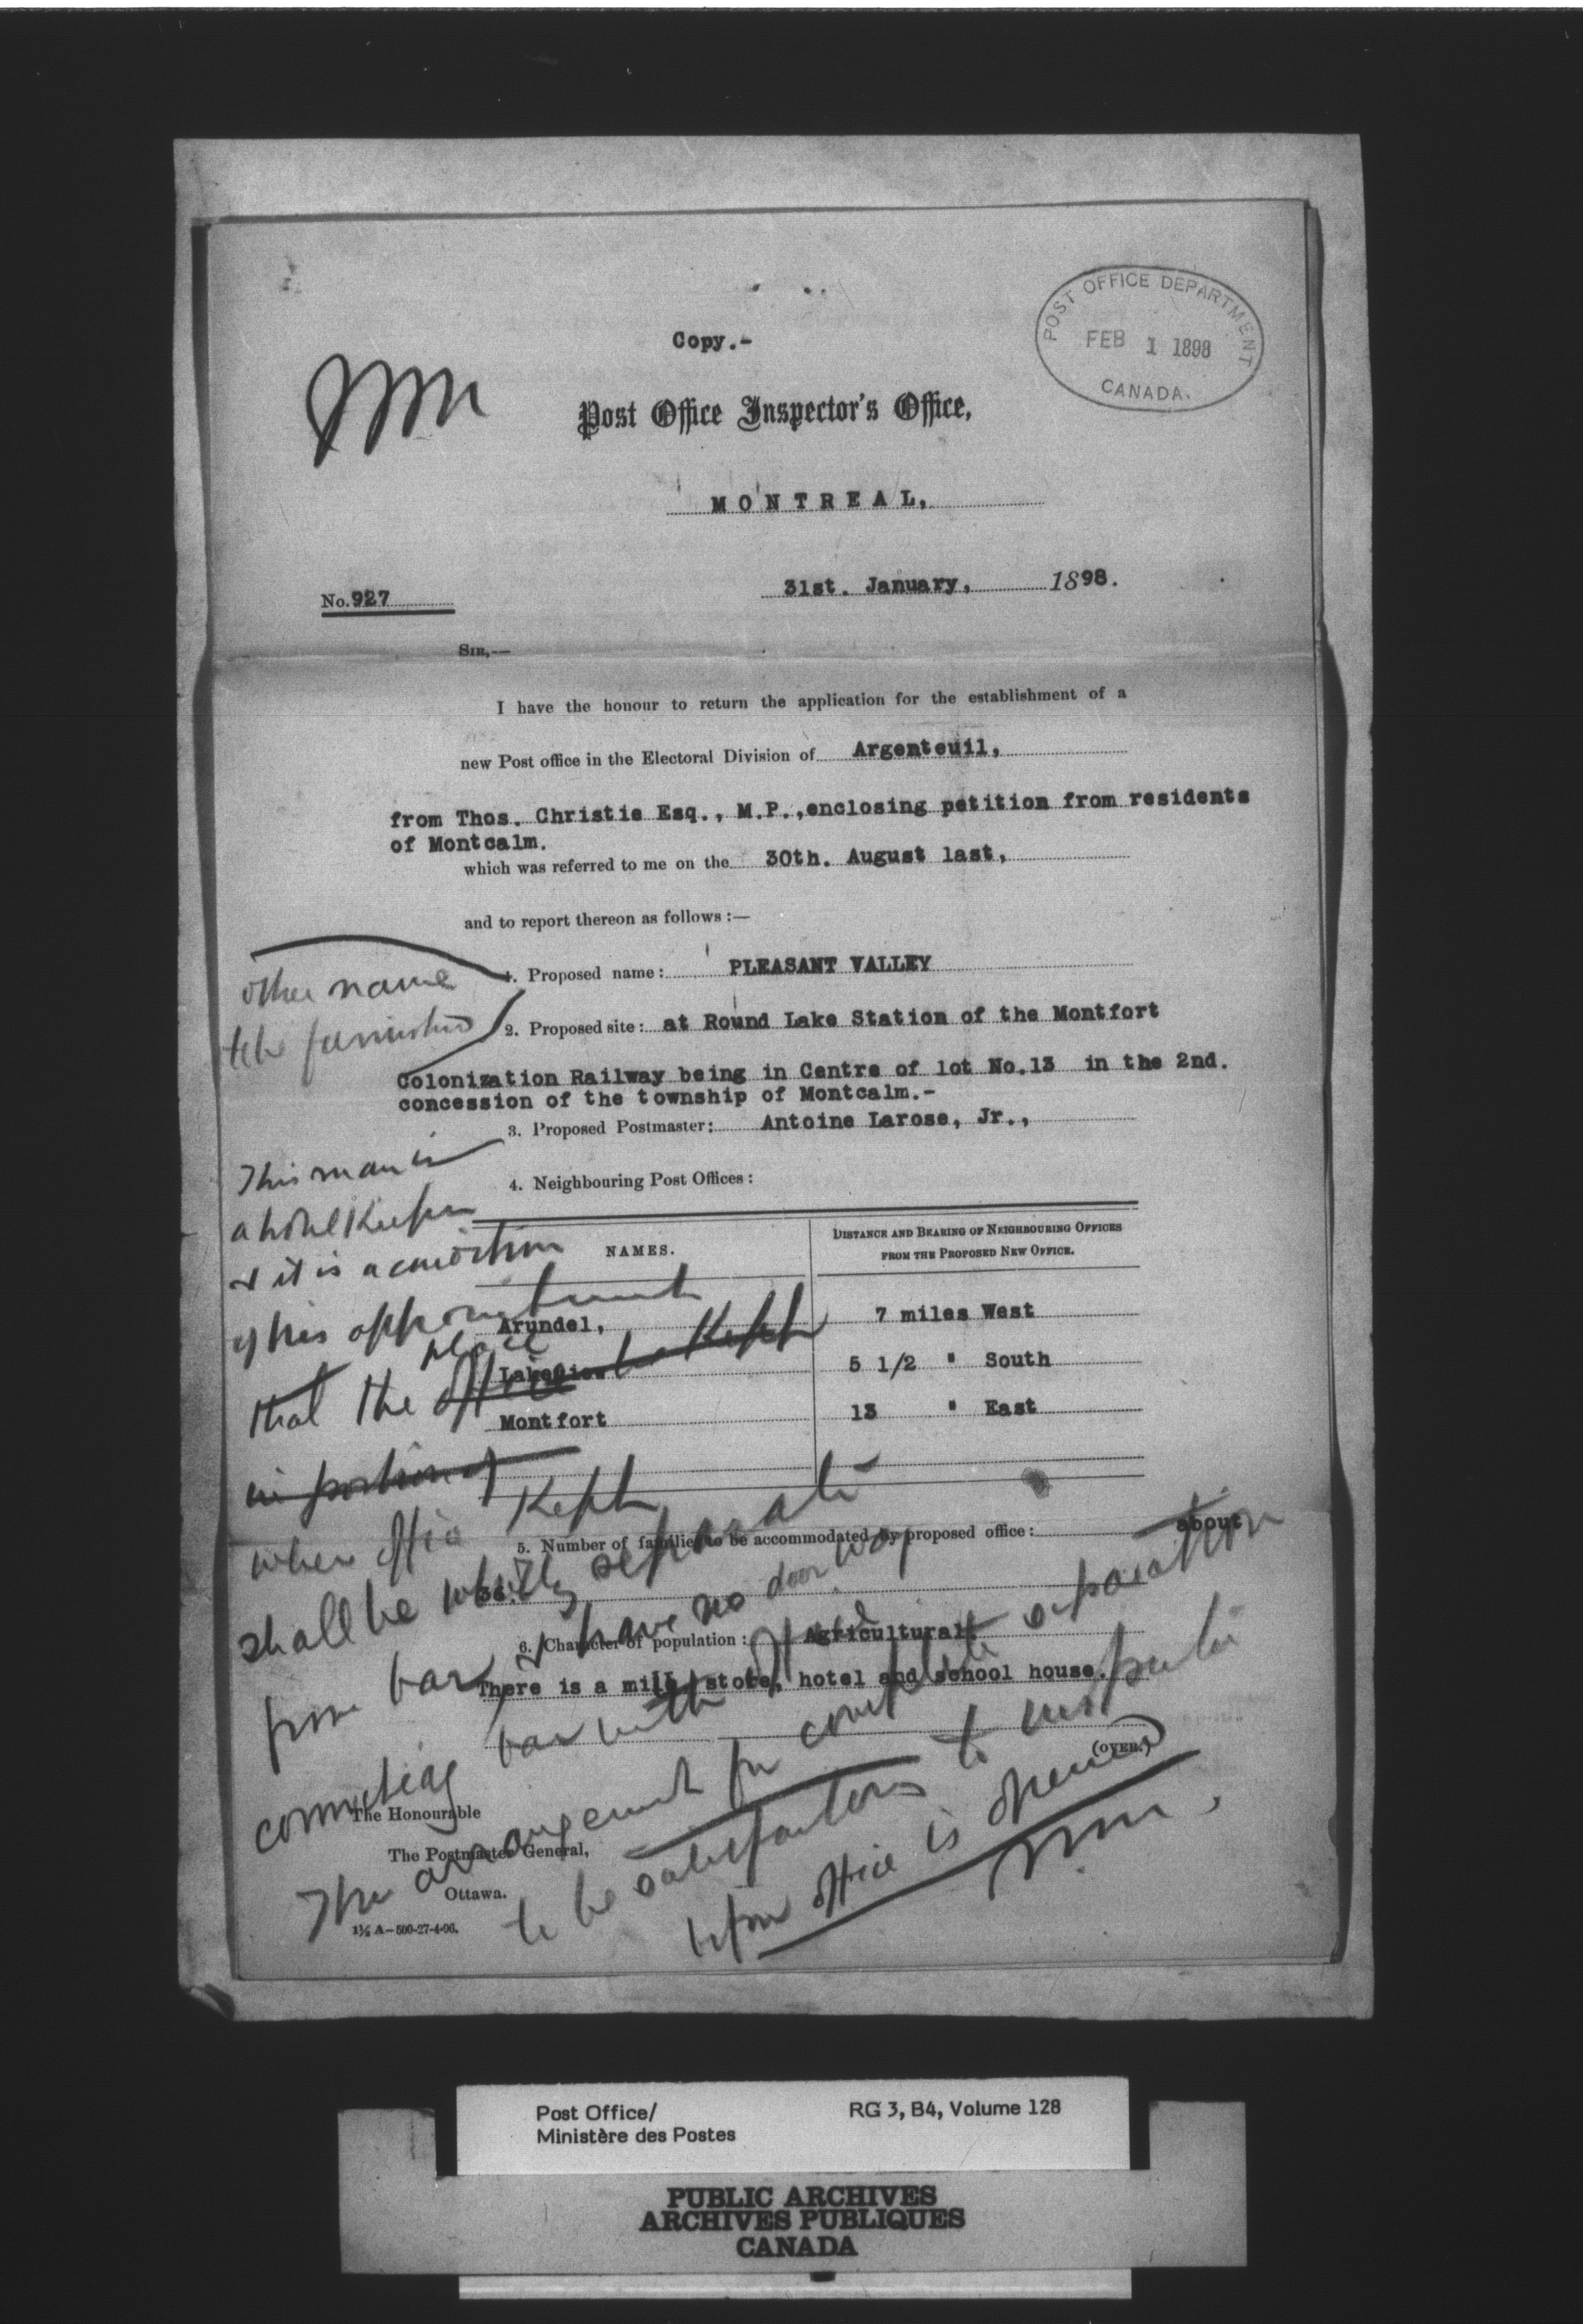 Copy.-
POST OFFICE DEPARTMENT
FEB 1 1898
CANADA.
Post Office Inspector's Office,
MONTREAL,
31st. January, 1898.
No. 927
SIR,—
I have the honour to return the application for the establishment of a
new Post office in the Electoral Division of Argenteuil,
from Thos. Christie Esq., M.P.,enclosing petition from residents
of Montcalm.
which was referred to me on the 30th. August last,
and to report thereon as follows :—
1. Proposed name: PLEASANT VALLEY
other name
to be furnished
2. Proposed site: at Round Lake Station of the Montfort
Colonization Railway being in Centre of lot No.13 in the 2nd.
concession of the township of Montcalm.-
3. Proposed Postmaster: Antoine Larose, Jr.,
4. Neighbouring Post Offices :
NAMES.
DISTANCE AND BEARING OF NEIGHBOURING OFFICES
FROM THE PROPOSED NEW OFFICE.
Arundel, 7 miles West
Lakeview 5 1/2 " South
Montfort 13 " East
5. Number of families to be accommodated by proposed office: about
36.
6. Character of population : Agricultural.
There is a mill, store, hotel and school house.
(OVER.)
The Honourable
The Postmaster General,
Ottawa.
1½ A—500-27-4-96.
This man is
a hotel Keeper
& it is a condition
of his appointment
that the office place to be Kept
in portion of
where office Kept
shall be wholly separate
from bar & have no door way
connecting bar with office
The arrangement for complete separation
to be satisfactory to inspector
before office is opened
Post Office/
Ministère des Postes
RG 3, B4, Volume 128
PUBLIC ARCHIVES
ARCHIVES PUBLIQUES
CANADA